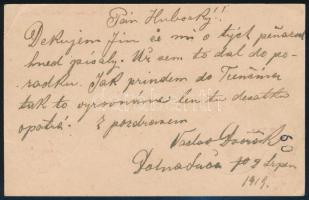 Pán Hubocký!
Dekujem Jim že mi o tých peňazoch
hned písaly. Už sem to dal do po-
radku. Jak prindem do Trenčína
tak to vyrovnáme len tú desatku
opatrá. S pozdravem
Václav Dvořák
Dolna 9 Srpen
1919.